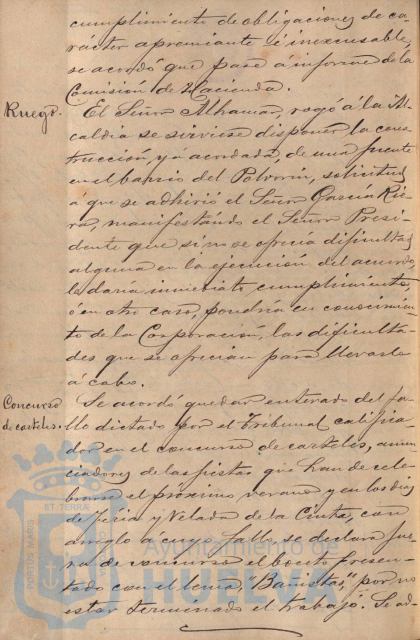 cumplimiento de obligaciones de ca-
rácter apremiante é inexcusable,
se acordó que pase á informe de la
Comisión de Hacienda.
Ruego.
El Señor Alhamar, rogó á la Al-
caldia se sirviese disponer la cons-
trucción, ya acordada, de una fuente
en el barrio del Polvorin, solicitud
á que se adhirió el Señor García Rie-
ra, manifestando el Señor Presi-
dente que si no se ofrecia dificultad
alguna en la ejecución del acuerdo,
le daria inmediato cumplimiento,
ó en otro caso, pondria en conocimien-
to de la Corporación, las dificulta-
des que se ofrecian para llevarlo
á cabo.
Concurso
de carteles.
Se acordó quedar enterado del fa-
llo dictado por el Tribunal califica-
dor en el concurso de carteles, anun-
ciadores de las fiestas que han de cele-
brarse el próximo verano y en los dias
de Feria y Velada de la Cinta, con
arreglo á cuyo fallo, se declara fue-
ra de concurso el boceto presen-
tado con el lema "Bañistas", por no
estar terminado el trabajo. Se ad-
PORTUS MARIS
ET TERRÆ
Ayuntamiento de
HUELVA